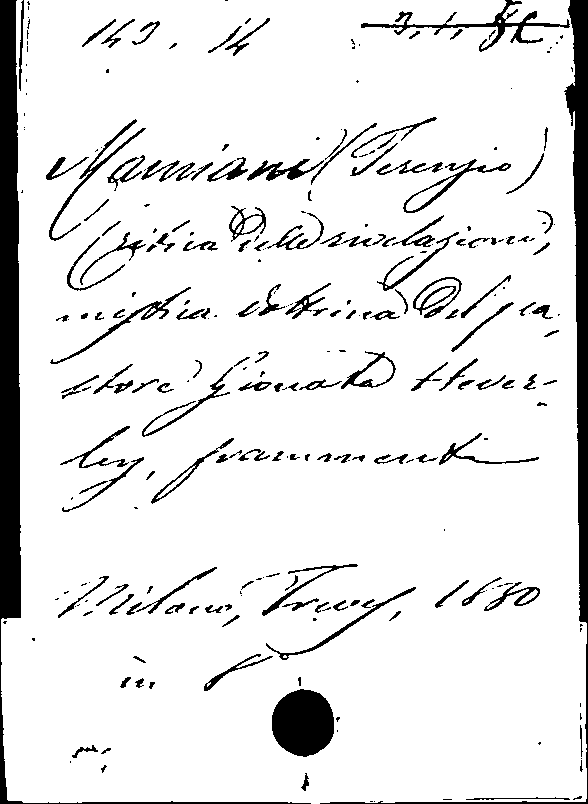 143. 14 3, 1, 8C
Mamiani (Terenzio)
Critica delle rivelazioni,
mistica dottrina del pa-
store Gionata Hever-
ley, frammenti
Milano, Treves, 1880
in 8°